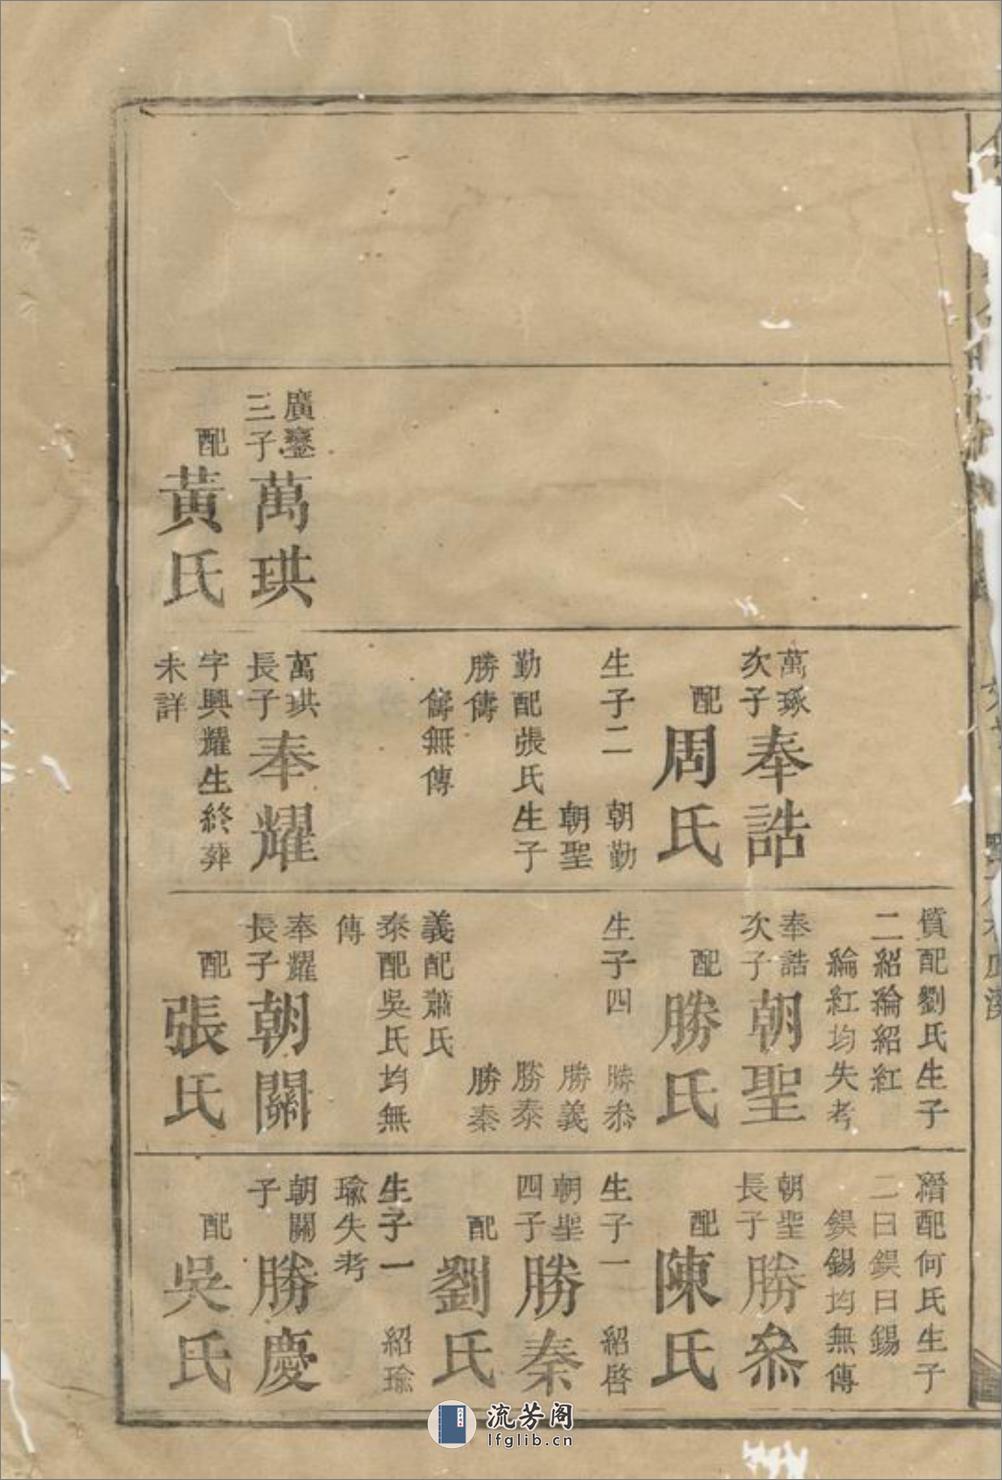 廣鑾
三子
萬珙
配
黃氏
萬琢
次子
奉誥
配
周氏
生子二
朝勤
朝聖
勤配張氏生子
勝儔
儔無傳
萬珙
長子
奉耀
字興耀生終葬
未詳
質配劉氏生子
二紹綸紹紅
綸紅均失考
奉誥
次子
朝聖
配
勝氏
生子四
勝叅
勝義
勝泰
勝秦
義配蕭氏
泰配吳氏均無
傳
奉耀
長子
朝關
配
張氏
配何氏生子
二曰鍈曰錫
鍈錫均無傳
朝聖
長子
勝叅
配
陳氏
生子一
紹啓
朝聖
四子
勝秦
配
劉氏
生子一
紹瑜
瑜失考
朝關
子
勝慶
配
吳氏
流芳阁
lfglib.cn